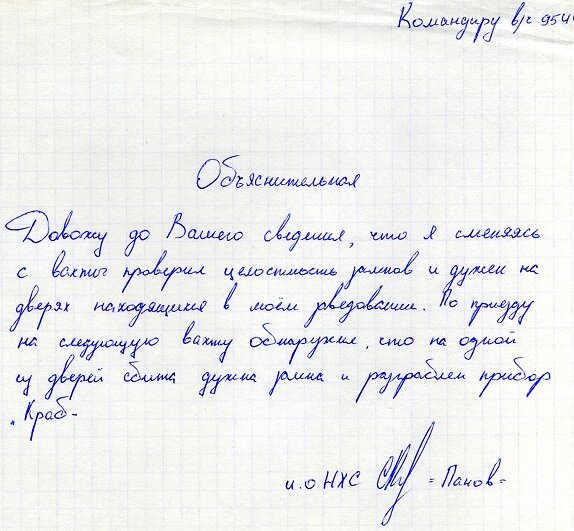 Командиру в/ч 954
Объяснительная
Довожу до Вашего сведения, что я сменяясь
с вахты проверил целостность замков и дужек на
дверях находящихся в моём заведовании. По приезду
на следующую вахту обнаружил, что на одной
из дверей сбита дужка замка и разграблен прибор
"Краб-
и.о НХС =Панов=